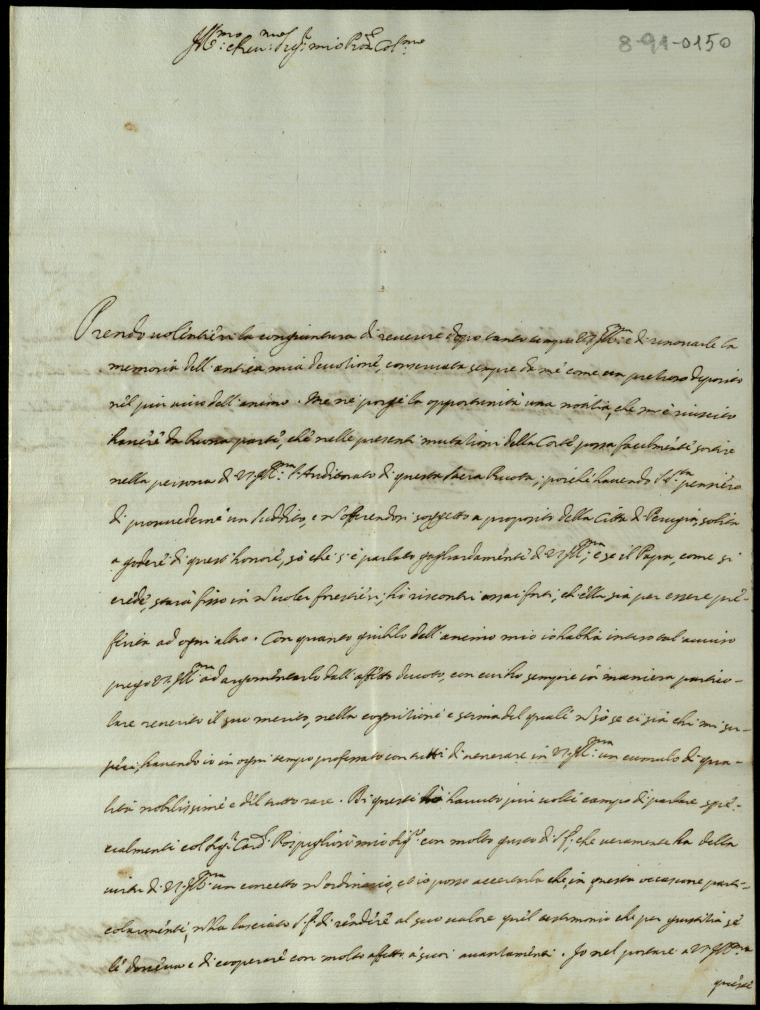 Ill.mo e Rev.mo Sig.r mio P.ron Col.mo
8-91-0150
Prendo uolentieri la congiuntura di reuerire dopo tanto tempo V.S.Ill.ma e di rinouarle la
memoria dell'antica mia deuotione, conseruata sempre da me come un pretioso deposito
nel più uiuo dell'animo. Me ne porge la opportunità una notitia, che m'è riuscito
hauere da buona parte, che nelle presenti mutationi della Corte possa facilmente sortire
nella persona di V.S.Ill.ma l'Auditorato di questa Sacra Ruota; poiche hauendo S.S.tà pensiero
di prouederne un suddito, e nõ offerendosi soggetto a proposito della Città di Perugia, solita
a godere di quest'honore, sò che s'è parlato gagliardamente di V.S.Ill.ma; e se il Papa, come si
crede, starà fisso in nõ uoler forestieri, hò riscontri assai forti, ch'ella sia per essere pre-
ferita ad ogni altro. Con quanto giubilo dell'animo mio io habbia inteso tal auuiso
prego V.S.Ill.ma ad argomentarlo dall'affetto deuoto, con cui ho sempre in maniera partico-
lare reuerito il suo merito, nella cognitione e stima del quale nõ sò se ci sia chi mi su-
peri, hauendo io in ogni tempo professato con tutti di uenerare in V.S.Ill.ma un cumulo di qua-
lità nobilissime e del tutto rare. Di queste hò hauuto più uolte campo di parlare spe-
cialmente col Sig.r Card. Rospigliosi mio Sig.re con molto gusto di S.E. che ueramente ha della
uirtù di V.S.Ill.ma un concetto nõ ordinario, et io posso accertarla che, in questa occasione parti-
colarmente, nõ ha lasciato S.E. di rendere al suo ualore quel testimonio che per giustitia se
le doueua e di cooperare con molto affetto a' suoi auanzamenti. Io nel portare a V.S.Ill.ma
queste